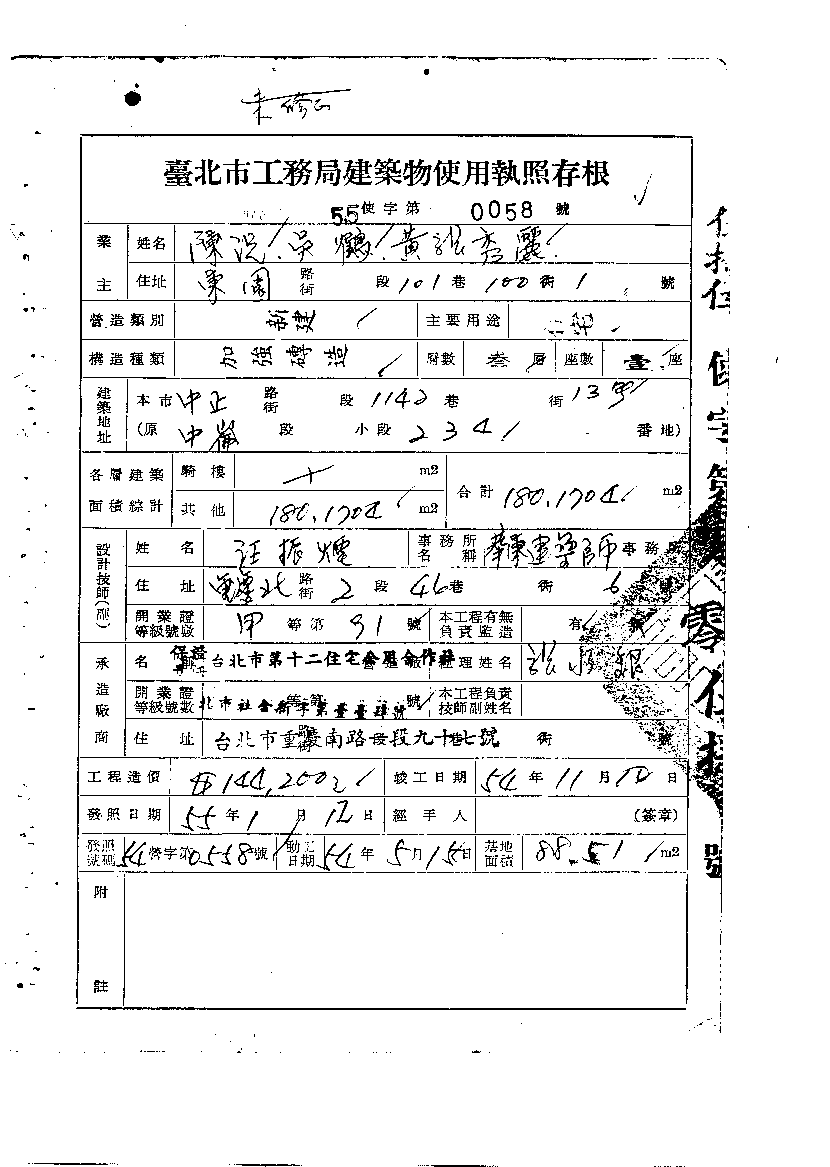 臺北市工務局建築物使用執照存根
55使字第 0058 號
業主 姓名
住址 東園 路街 段 101 巷 100 街 1 號
營造類別 新建 主要用途 住宅
構造種類 加強磚造 層數 叁層 座數 壹座
建築地址 本市 中正 路街 段 1142 巷 街 13號
(原 中崙 段 小段 234 番地)
各層建築面積綜計 騎樓 m2 合計 180.1704 m2
其他 180.1704 m2
設計技師(副) 姓名 汪振煙 事務所名稱 建築師事務所
住址 北路街 2 段 46巷 街 6 號
開業證等級號數 甲 等第 91 號 本工程有無負責監造 有
承造廠商 名 保證 台北市第十二住宅公用合作社 經理姓名
開業證等級號數 等第 號 本工程負責技師副姓名
住址 台北市重慶南路 段九十七號 街 號
工程造價 $144,200元 竣工日期 54年11月10日
發照日期 55年1月12日 經手人 (簽章)
發照號碼 54營字第0558號 動工日期 54年5月15日 落地面積 88.51 m2
附註